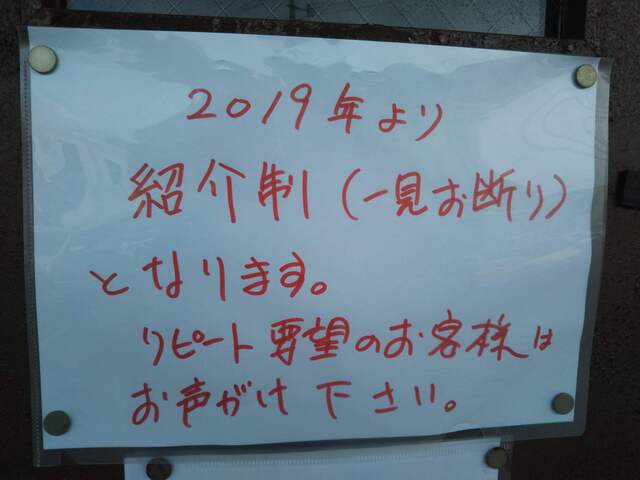 2019年より
紹介制(一見お断り)
となります。
リピート要望のお客様は
お声がけ下さい。